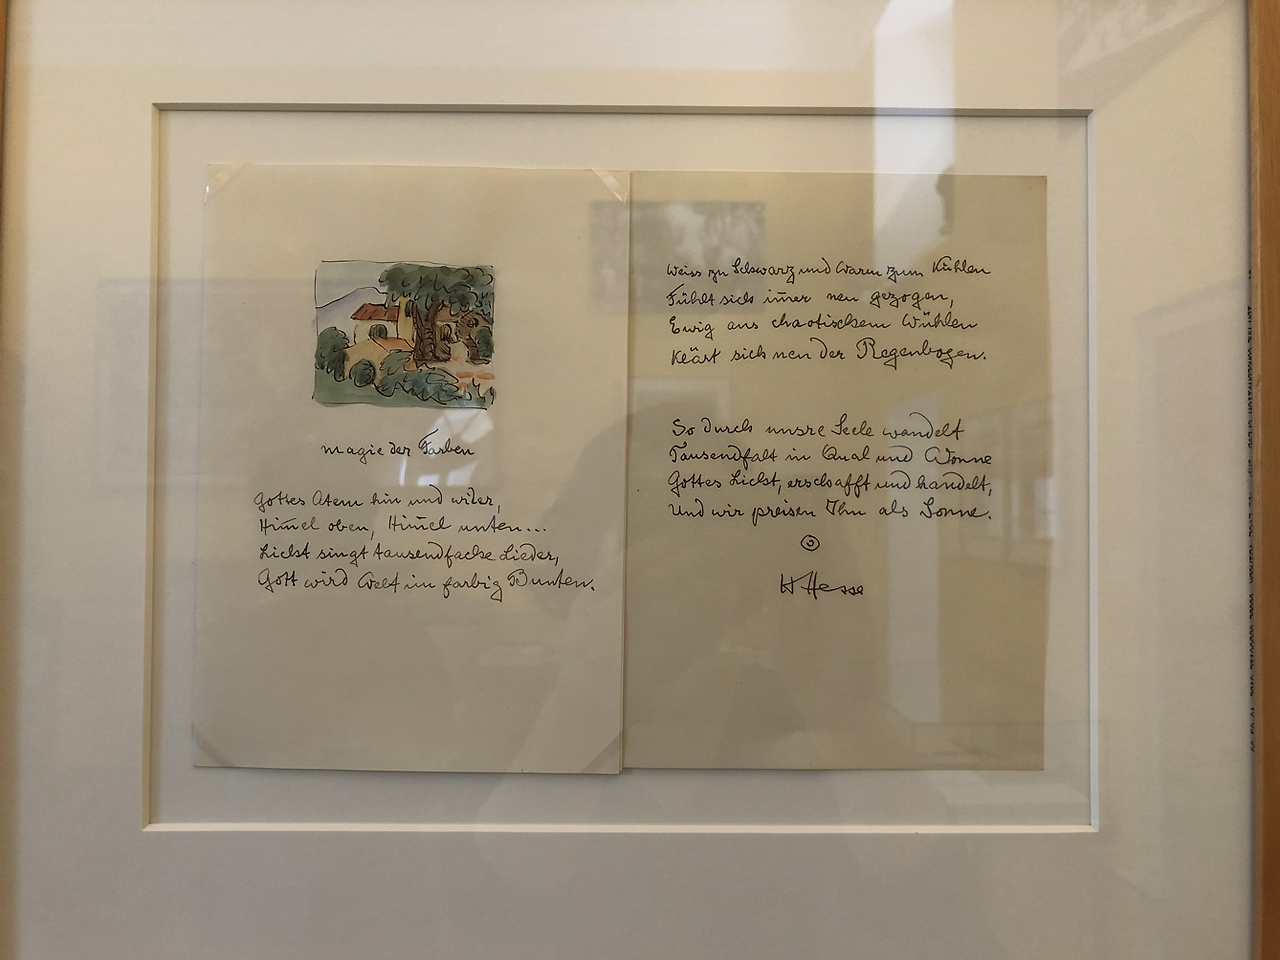 Magie der Farben
Gottes Atem hin und wider,
Him̅el oben, Him̅el unten...
Licht singt tausendfache Lieder,
Gott wird Welt im farbig Bunten.
Weiss zu Schwarz und Warm zum Kühlen
Fühlt sich im̅er neu gezogen,
Ewig aus chaotischem Wühlen
Klärt sich neu der Regenbogen.
So durch unsre Seele wandelt
Tausendfalt in Qual und Wonne
Gottes Licht, erschafft und handelt,
Und wir preisen Ihn als Sonne.
H Hesse